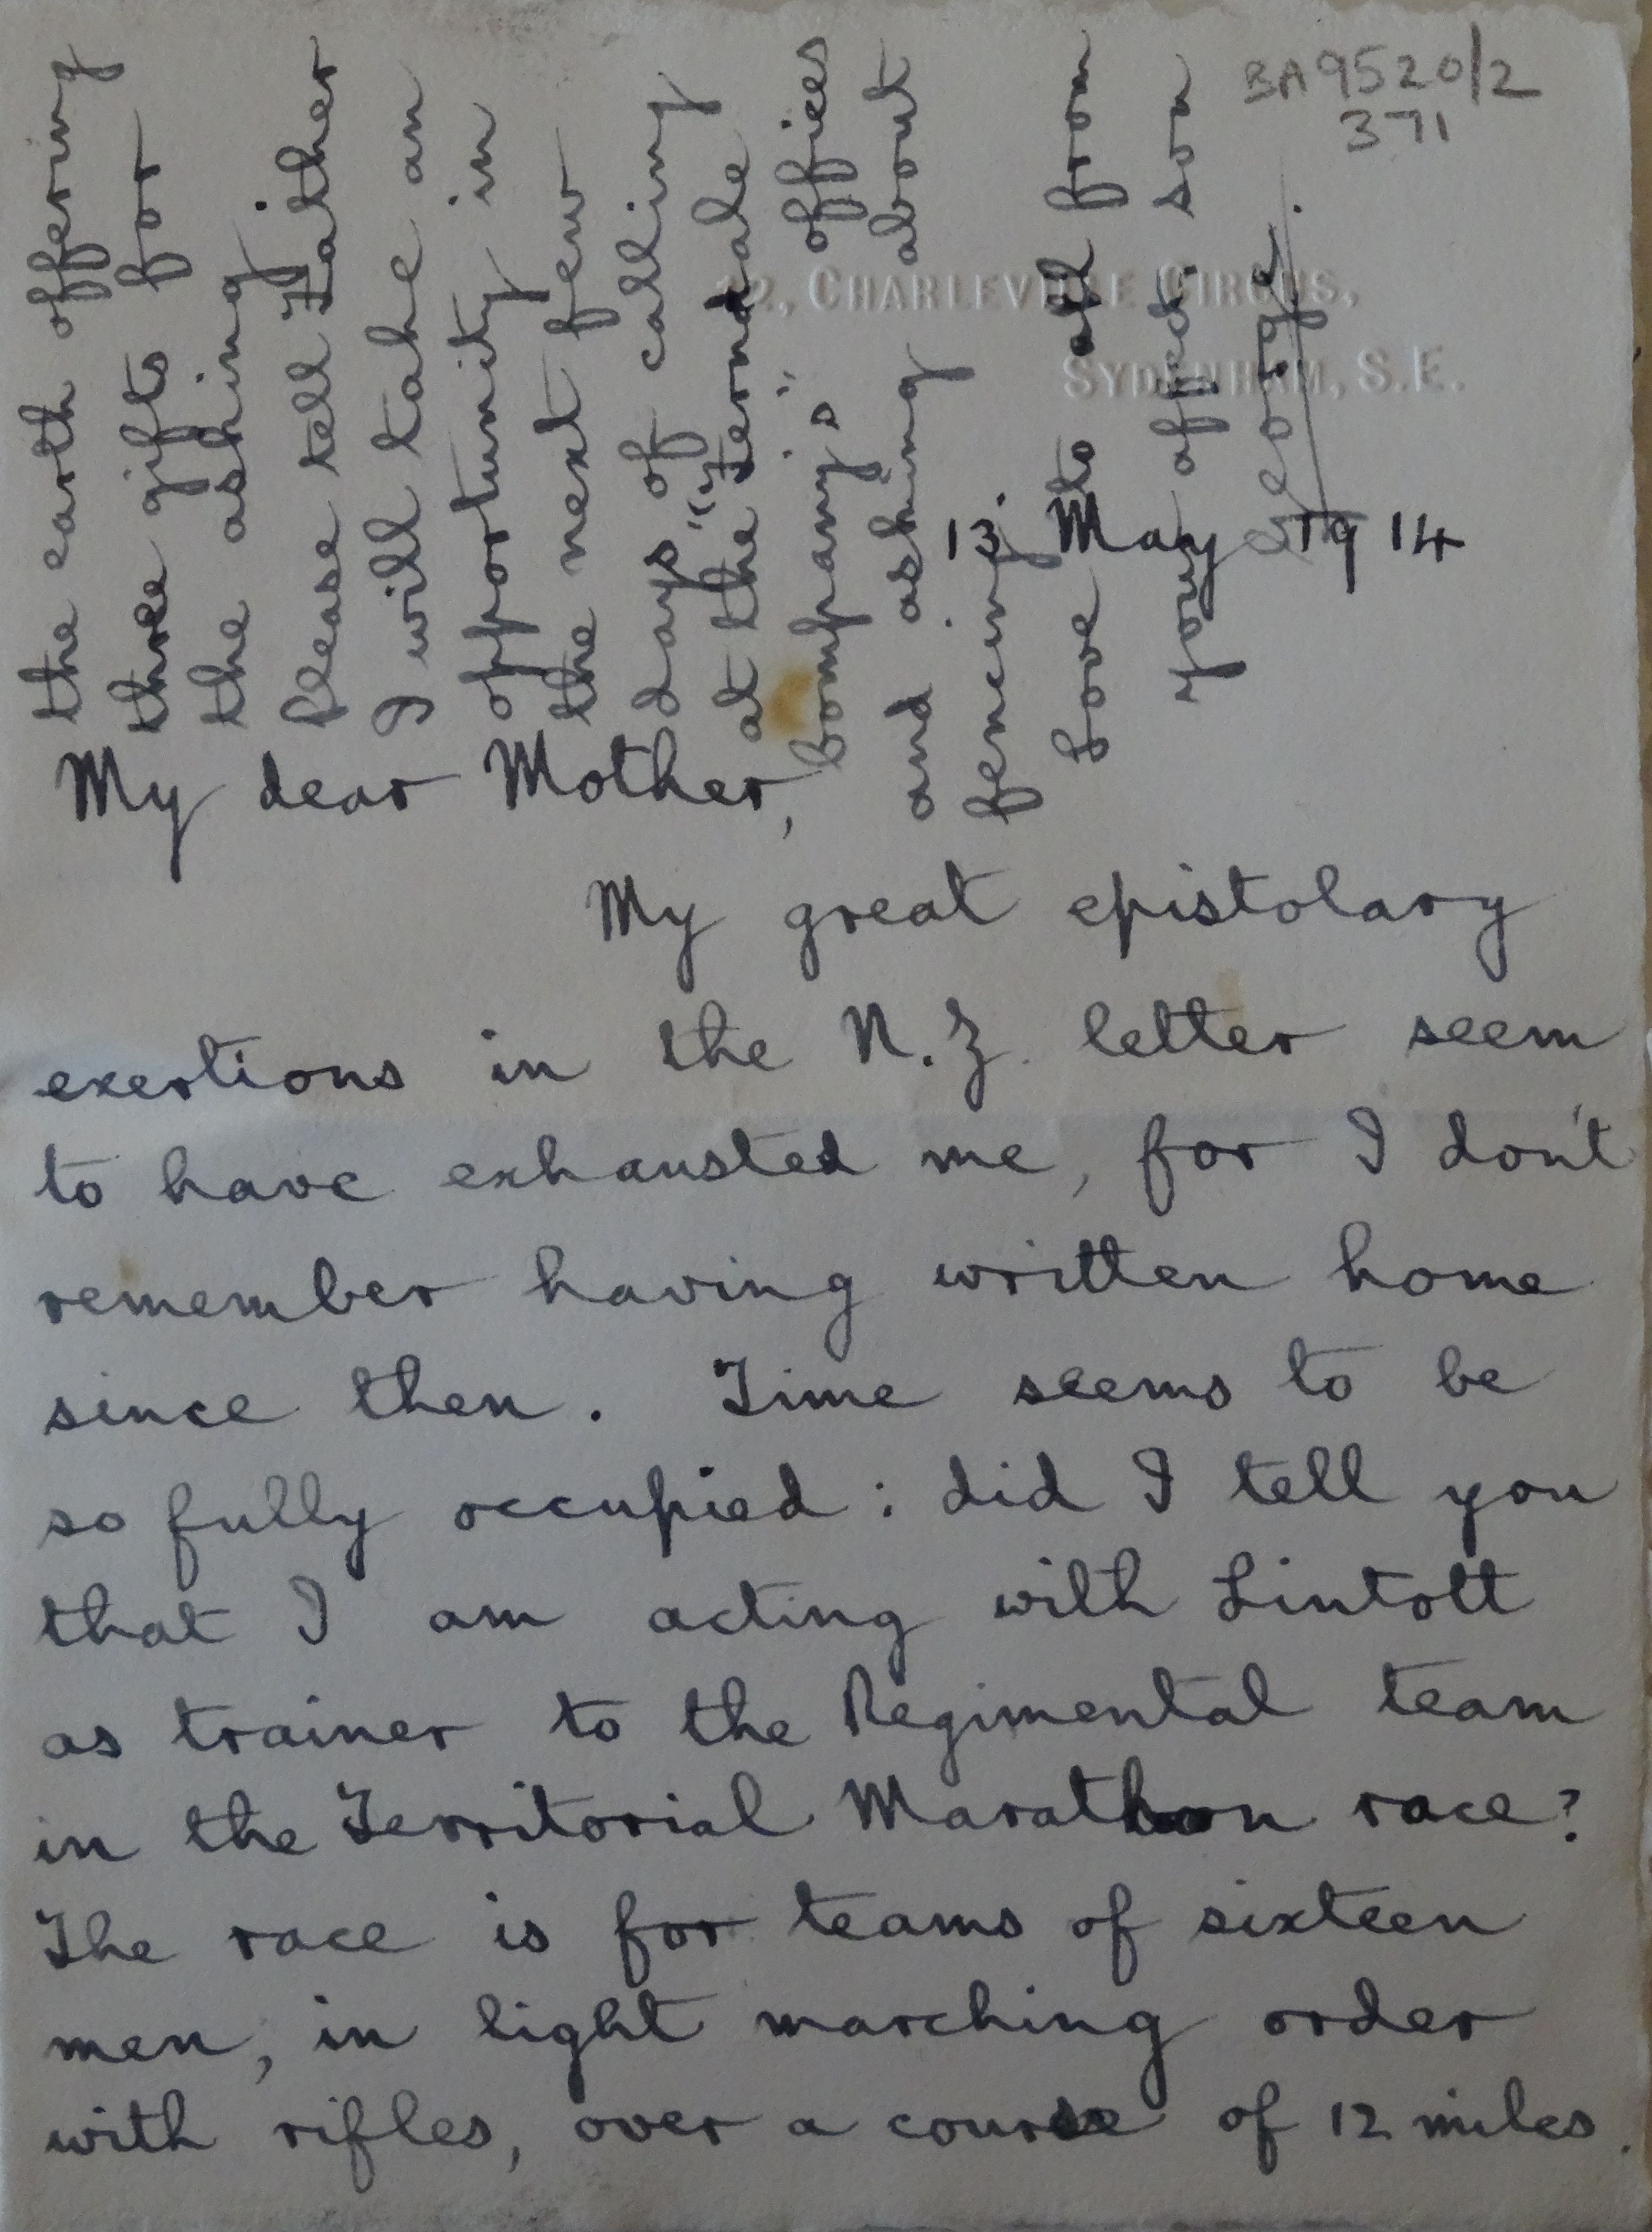 BA9520/2
371
12, CHARLEVILLE CIRCUS,
SYDENHAM, S.E.
13 May 1914
My dear Mother,
My great epistolary
exertions in the N.Z. letter seem
to have exhausted me, for I don't
remember having written home
since then. Time seems to be
so fully occupied: did I tell you
that I am acting with Lintott
as trainer to the Regimental team
in the Territorial Marathon race?
The race is for teams of sixteen
men, in light marching order
with rifles, over a course of 12 miles.
the earth offering
three gifts for
the asking.
Please tell Father
I will take an
opportunity in
the next few
days of calling
at the "Ferndale
Company's" offices
and asking about
fencing.
Love to all from
your affect. son
George.